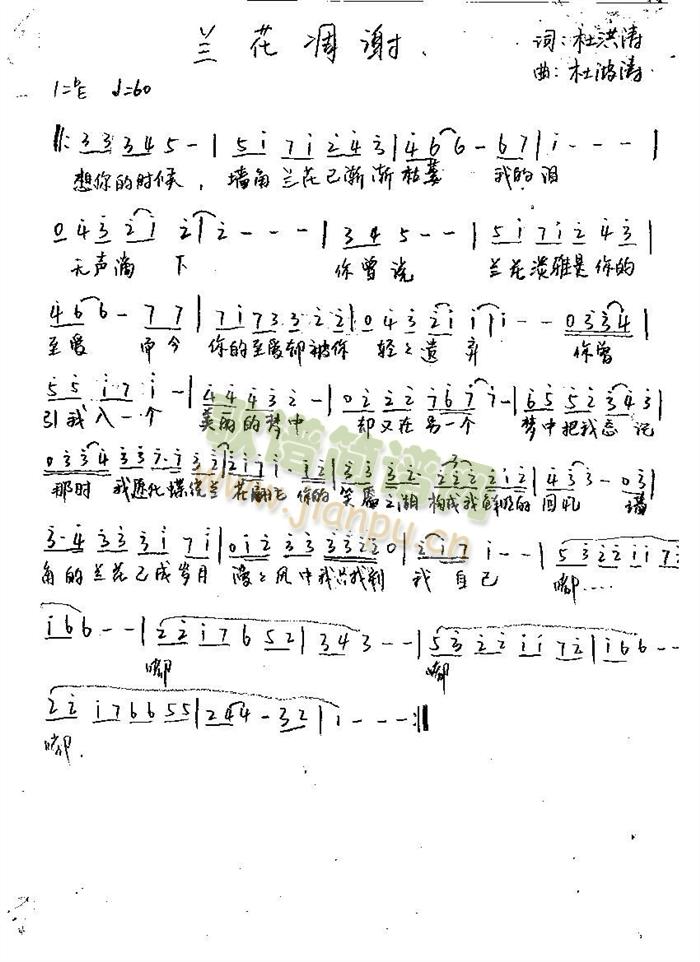 兰花凋谢
词:杜洪涛
曲:杜鸿涛
1=♭E ♩=60
‖: 3 3 3 4 5 - | 5 i 7 i 2 4 3 | 4 6 6 - 6 7 | i - - - |
想你的时候, 墙角兰花已渐渐枯萎 我的泪
0 4 3 2 i 2 | 2 - - - | 3 4 5 - - | 5 i 7 i 2 4 3 |
无声滴下 你曾说 兰花淡雅是你的
4 6 6 - 7 7 | 7 i 7 3 3 2 2 | 0 4 3 2 i i | i - - 0 3 3 4 |
至爱 而今 你的至爱却被你 轻轻遗弃 你曾
5 5 i 7 i - | 4 4 4 3 2 - | 0 2 2 2 7 6 7 | 7 - - | 6 5 5 2 3 4 3 |
引我入一个 美丽的梦中 却又在另一个 梦中把我忘记
0 3 3 4 3 3 7 · i 3 2 | 2 i 7 i · i 2 | 3 3 3 2 2 2 2 2 2 2 i 2 | 4 3 3 - 0 3 |
那时 我愿化蝶绕兰花翩飞 你的笑靥 构成我鲜明的回忆 墙
3 · 4 3 3 3 i 7 i | 0 i 2 3 3 3 3 2 2 0 | 2 i 7 i - - | 5 3 2 2 i i 7 2
角的兰花已成岁月 漫漫风中我只找到 我自己 嘟....
i 6 6 - - | 2 2 i 7 6 5 2 | 3 4 3 - - | 5 3 2 2 i i 7 2 | i 6 6 - -
嘟 嘟
2 2 i 7 6 6 5 5 | 2 4 4 - 3 2 | i - - - :‖
嘟.
歌谱简谱网
www.jianpu.cn